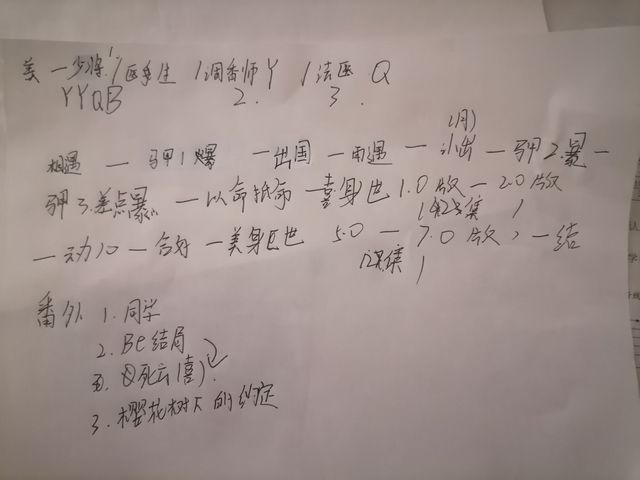 美 一少将 1/医多生 1调香师Y 1法医 Q
YYQB 2. 3.
(月)
相遇 — 马甲1爆 — 出国 — 雨遇 — 小出 — 马甲2暴 —
马甲3差点暴 — 以命抵命 — 喜身世 1.0版 — 2.0版
— 动心 — 合好 — 美身世 5.0 — 7.0版, — 结
番外 1. 同学
2. Be结局
死亡(喜)
3. 樱花树下的约定